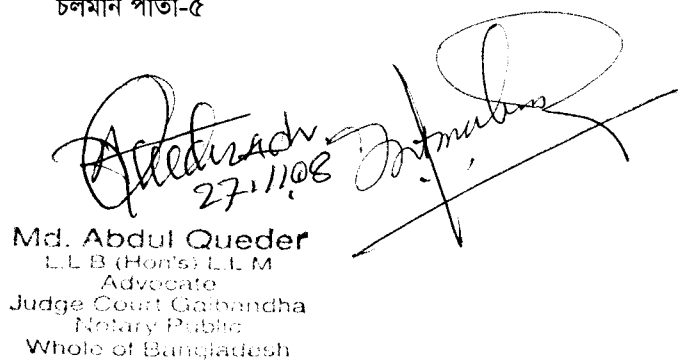 চলমান পাতা-৫
27.11.08
Md. Abdul Queder
L.L B (Hon's) L.L M
Advocate
Judge Court Gaibandha
Notary Public
Whole of Bangladesh